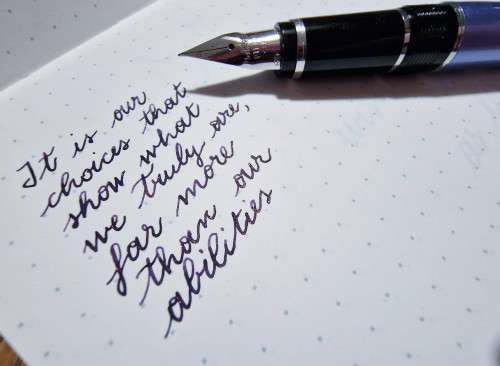 It is our
choices that
show what
we truly are,
far more
than our
abilities